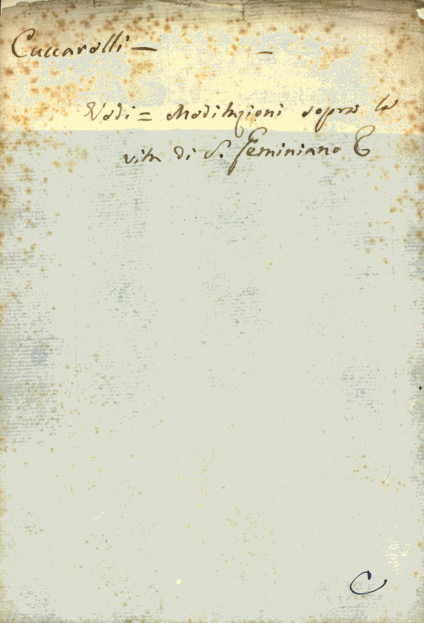 Cuccarelli — —
Vedi = Meditazioni sopra la
vita di S. Geminiano C
C